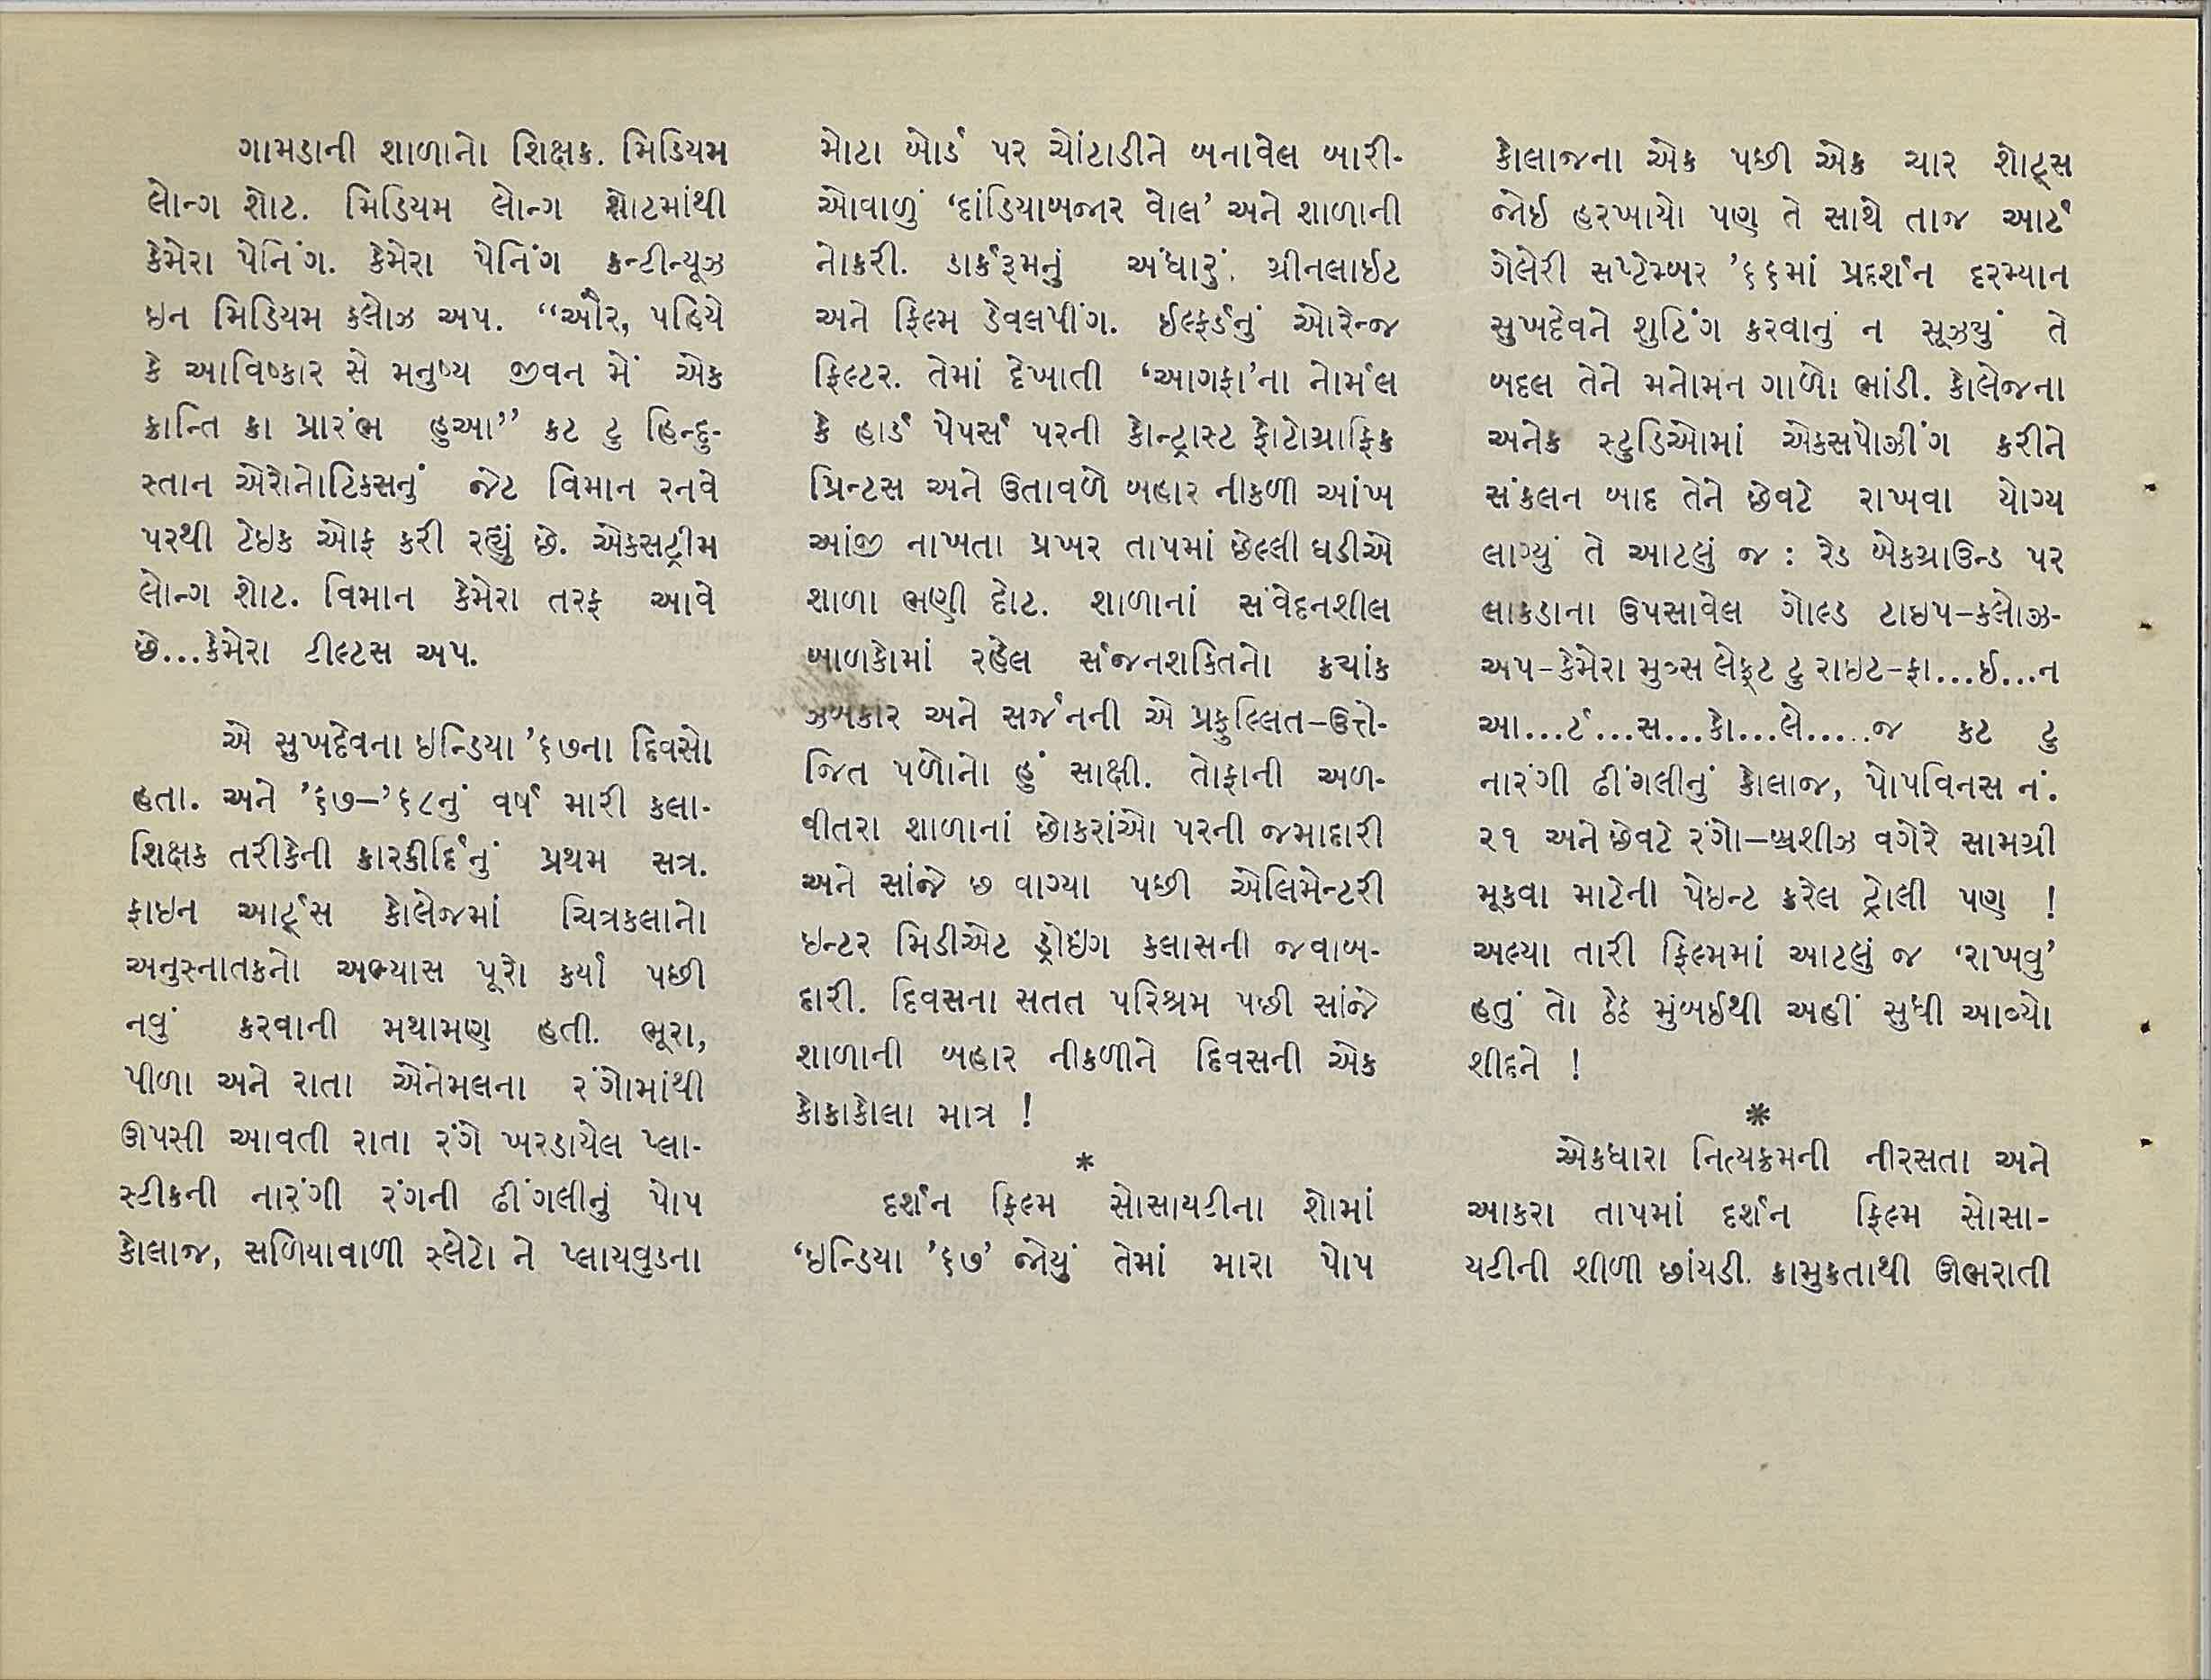 ગામડાની શાળાનો શિક્ષક. મિડિયમ
લોન્ગ શોટ. મિડિયમ લોન્ગ શોટમાંથી
કેમેરા પેનિંગ. કેમેરા પેનિંગ કન્ટીન્યૂઝ
ઇન મિડિયમ ક્લોઝ અપ. “ઔર, પહિયે
કે આવિષ્કાર સે મનુષ્ય જીવન મેં એક
ક્રાન્તિ કા પ્રારંભ હુઆ” કટ ટુ હિન્દુ-
સ્તાન એરોનોટિક્સનું જેટ વિમાન રનવે
પરથી ટેઇક ઓફ કરી રહ્યું છે. એક્સટ્રીમ
લોન્ગ શોટ. વિમાન કેમેરા તરફ આવે
છે...કેમેરા ટીલ્ટસ અપ.
એ સુખદેવના ઇન્ડિયા ’૬૭ના દિવસો
હતા. અને ’૬૭–’૬૮નું વર્ષ મારી કલા-
શિક્ષક તરીકેની કારકીર્દિનું પ્રથમ સત્ર.
ફાઇન આર્ટ્સ કોલેજમાં ચિત્રકલાનો
અનુસ્નાતકનો અભ્યાસ પૂરો કર્યા પછી
નવું કરવાની મથામણ હતી. ભૂરા,
પીળા અને રાતા એનેમલના રંગોમાંથી
ઊપસી આવતી રાતા રંગે ખરડાયેલ પ્લા-
સ્ટીકની નારંગી રંગની ઢીંગલીનું પોપ
કોલાજ, સળિયાવાળી સ્લેટો ને પ્લાયવુડના
મોટા બોર્ડ પર ચોંટાડીને બનાવેલ બારી-
ઓવાળું ‘દાંડિયાબજાર વોલ’ અને શાળાની
નોકરી. ડાર્કરૂમનું અંધારું. ગ્રીનલાઈટ
અને ફિલ્મ ડેવલપીંગ. ઈલ્ફર્ડનું ઓરેન્જ
ફિલ્ટર. તેમાં દેખાતી ‘આગફા’ના નોર્મલ
કે હાર્ડ પેપર્સ પરની કોન્ટ્રાસ્ટ ફોટોગ્રાફિક
પ્રિન્ટસ અને ઉતાવળે બહાર નીકળી આંખ
આંજી નાખતા પ્રખર તાપમાં છેલ્લી ઘડીએ
શાળા ભણી દોટ. શાળાનાં સંવેદનશીલ
બાળકોમાં રહેલ સર્જનશક્તિનો ક્યાંક
ઝબકાર અને સર્જનની એ પ્રફુલ્લિત–ઉત્તે-
જિત પળોનો હું સાક્ષી. તોફાની અળ-
વીતરા શાળાનાં છોકરાંઓ પરની જમાદારી
અને સાંજે છ વાગ્યા પછી એલિમેન્ટરી
ઇન્ટર મિડીએટ ડ્રોઇંગ ક્લાસની જવાબ-
દારી. દિવસના સતત પરિશ્રમ પછી સાંજે
શાળાની બહાર નીકળીને દિવસની એક
કોકાકોલા માત્ર !
*
દર્શન ફિલ્મ સોસાયટીના શોમાં
‘ઇન્ડિયા ’૬૭’ જોયું તેમાં મારા પોપ
કોલાજના એક પછી એક ચાર શોટ્સ
જોઈ હરખાયો પણ તે સાથે તાજ આર્ટ
ગેલેરી સપ્ટેમ્બર ’૬૬માં પ્રદર્શન દરમ્યાન
સુખદેવને શુટિંગ કરવાનું ન સૂઝ્યું તે
બદલ તેને મનોમન ગાળો ભાંડી. કોલેજના
અનેક સ્ટુડિઓમાં એક્સપોઝીંગ કરીને
સંકલન બાદ તેને છેવટે રાખવા યોગ્ય
લાગ્યું તે આટલું જ : રેડ બેકગ્રાઉન્ડ પર
લાકડાના ઉપસાવેલ ગોલ્ડ ટાઇપ–ક્લોઝ-
અપ–કેમેરા મુવ્સ લેફ્ટ ટુ રાઇટ–ફા...ઈ...ન
આ...ર્ટ...સ...કો...લે.....જ કટ ટુ
નારંગી ઢીંગલીનું કોલાજ, પોપવિનસ નં.
૨૧ અને છેવટે રંગો–બ્રશીઝ વગેરે સામગ્રી
મૂકવા માટેની પેઇન્ટ કરેલ ટ્રોલી પણ !
અલ્યા તારી ફિલ્મમાં આટલું જ ‘રાખવુ’
હતું તો ઠેઠ મુંબઈથી અહીં સુધી આવ્યો
શીદને !
*
એકધારા નિત્યક્રમની નીરસતા અને
આકરા તાપમાં દર્શન ફિલ્મ સોસા-
યટીની શીળી છાંયડી. કામુકતાથી ઊભરાતી